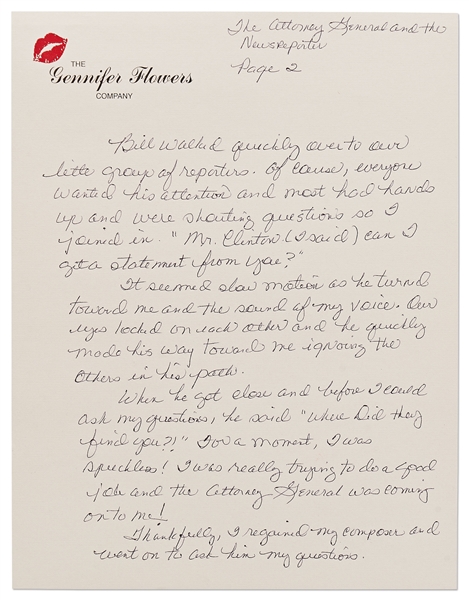 The Attorney General and the
Newsreporter
Page 2
THE
Gennifer Flowers
COMPANY
Bill walked quickly over to our
little group of reporters. Of cause, everyone
wanted his attention and most had hands
up and were shouting questions so I
joined in. "Mr. Clinton (I said) can I
get a statement from you?"
It seemed slow motion as he turned
toward me and the sound of my voice. Our
eyes locked on each other and he quickly
made his way toward me ignoring the
others in his path.
When he got close and before I could
ask my questions, he said "Where did they
find you?!" For a moment, I was
speechless! I was really trying to do a good
job and the Attorney General was coming
on to me!
Thankfully, I regained my composer and
went on to ask him my questions.